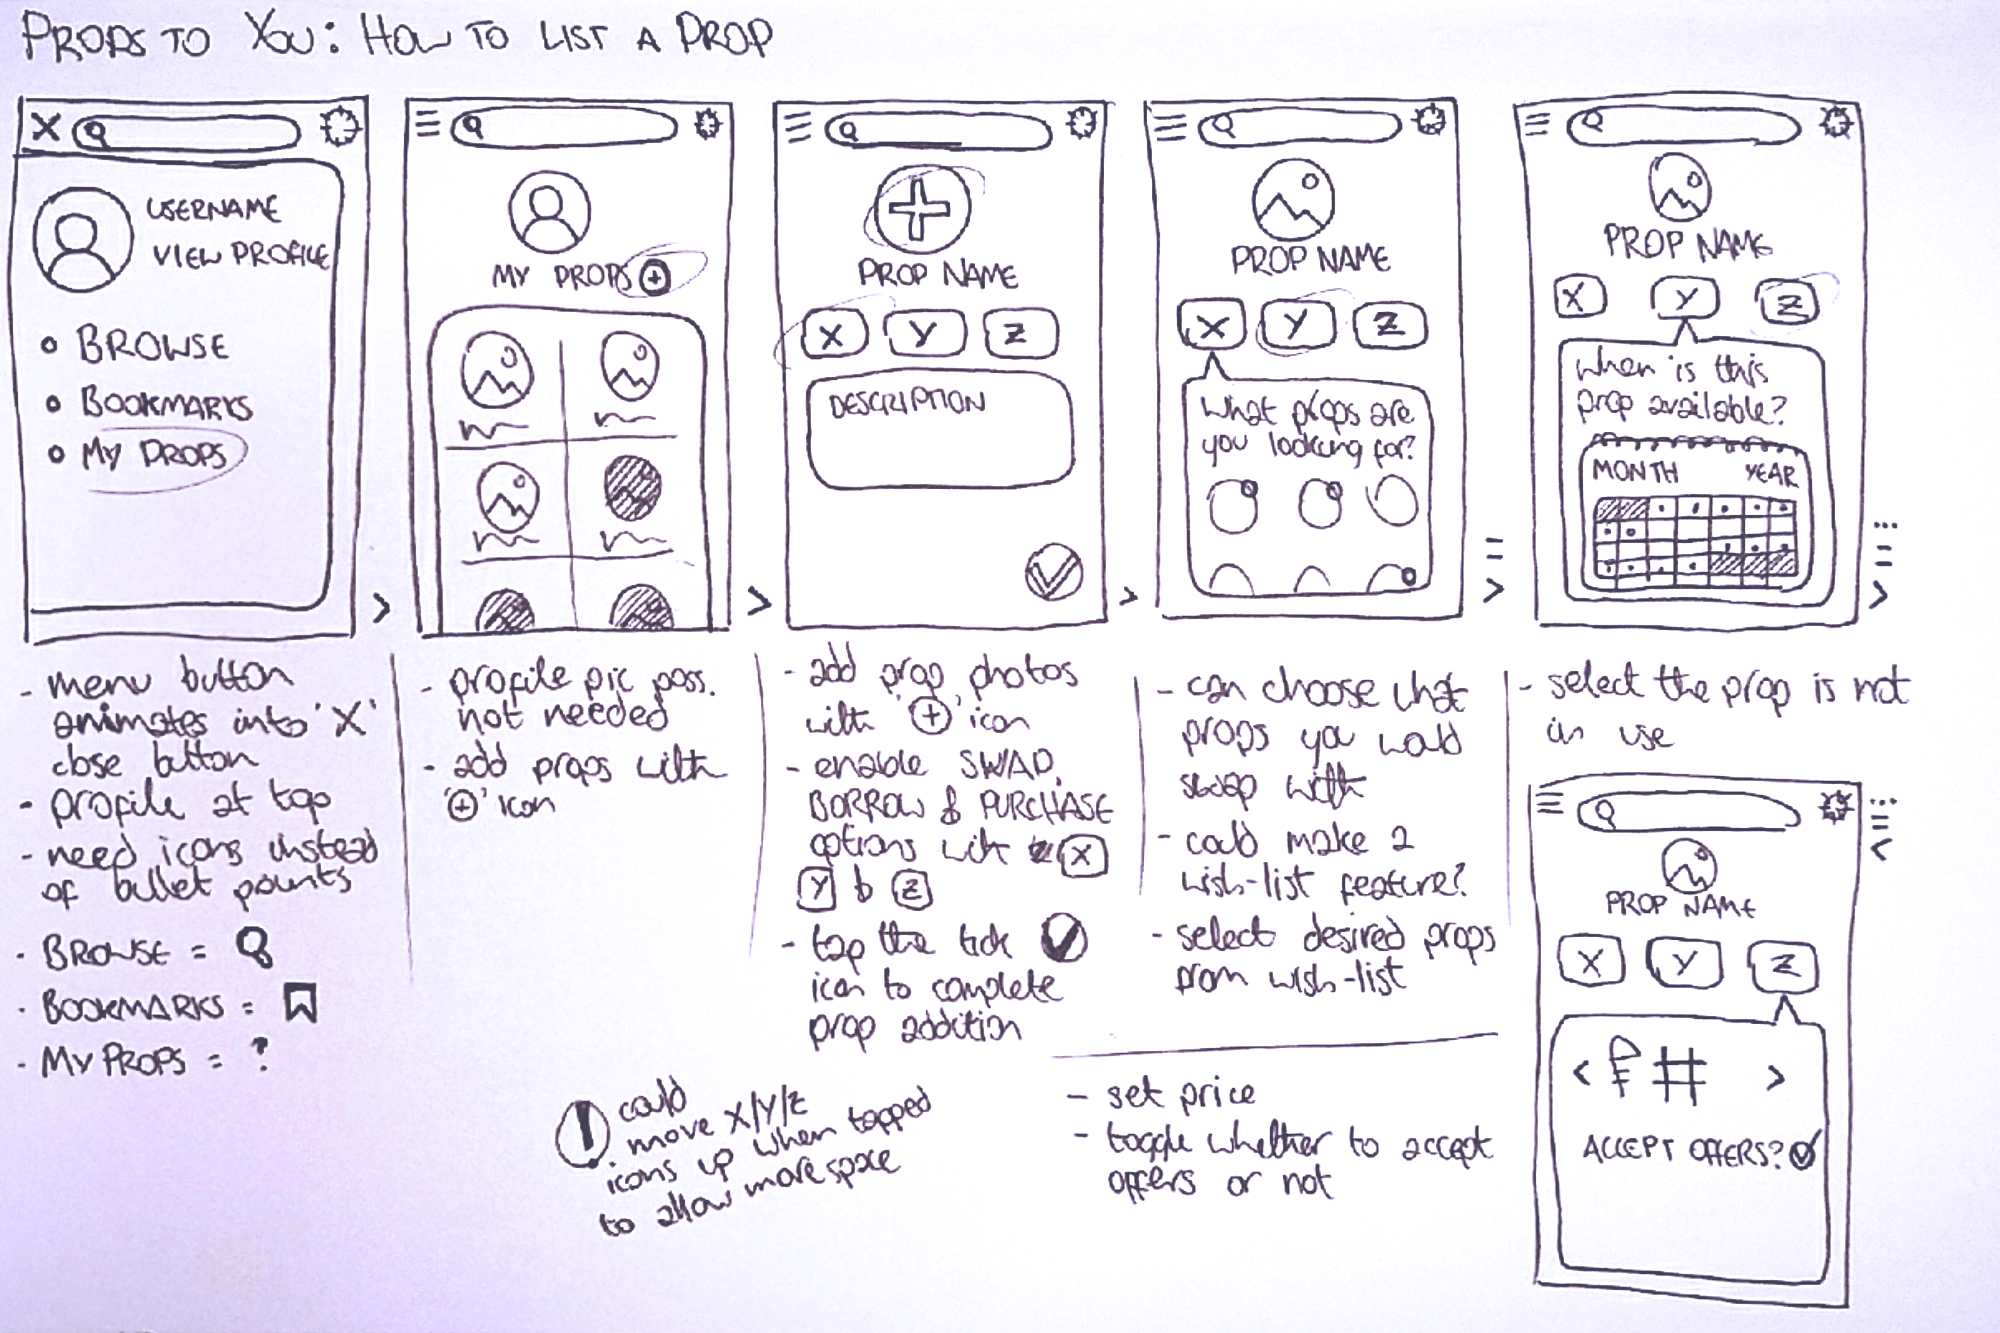 PROPS TO YOU: HOW TO LIST A PROP
X
USERNAME
VIEW PROFILE
BROWSE
BOOKMARKS
MY PROPS
>
- menu button
animates into 'X'
close button
- profile at top
- need icons instead
of bullet points
· BROWSE =
· BOOKMARKS =
· MY PROPS = ?
MY PROPS +
>
- profile pic poss.
not needed
- add props with
'+' icon
PROP NAME
X Y Z
DESCRIPTION
>
- add prop photos
with '+' icon
- enable SWAP,
BORROW & PURCHASE
options with X
Y & Z
- tap the tick
icon to complete
prop addition
! could
move X/Y/Z
icons up when tapped
to allow more space
PROP NAME
X Y Z
What props are
you looking for?
=
>
- can choose what
props you would
swap with
- could make a
wish-list feature?
- select desired props
from wish-list
PROP NAME
X Y Z
When is this
prop available?
MONTH YEAR
>
- select the prop is not
in use
PROP NAME
X Y Z
< £ # >
ACCEPT OFFERS?
<
- set price
- toggle whether to accept
offers or not